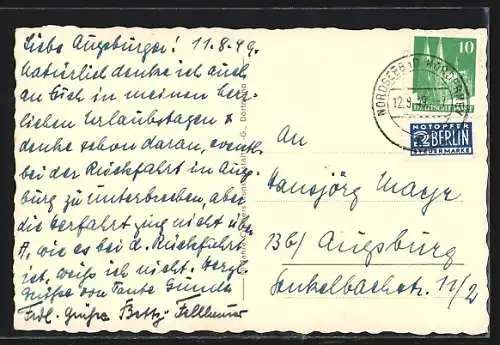 Liebe Augsburger! 11.8.49.
Natürlich denke ich auch
an Euch in meinen herr-
lichen Urlaubstagen &
denke schon daran, eventl.
bei der Rückfahrt in Augs-
burg zu unterbrechen, aber
die Herfahrt ging nicht über
A, wie es bei d. Rückfahrt
ist, weiß ich nicht. Herzl.
Grüße von Tante Gunda
Frdl. Grüße Betty
An
Hansjörg Mayr
13b/ Augsburg
11/2
10
NORDSEEBAD NORDERNEY
12.9.49
NOTOPFER
2 BERLIN
STEUERMARKE